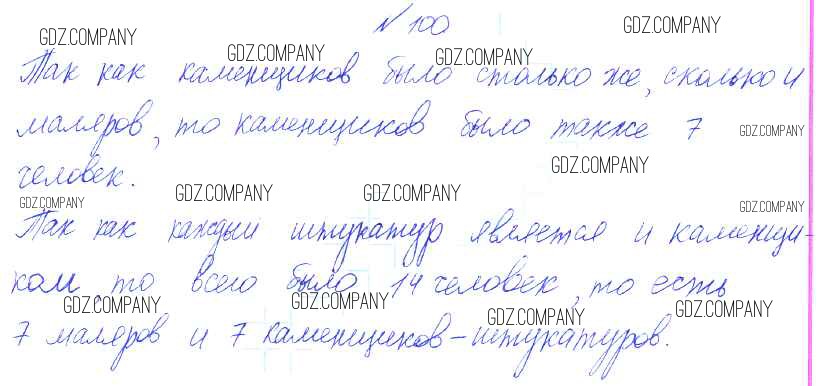 № 100
GDZ.COMPANY GDZ.COMPANY
GDZ.COMPANY GDZ.COMPANY
Так как каменщиков было столько же, сколько и
маляров, то каменщиков было также 7
GDZ.COMPANY
человек.
GDZ.COMPANY
GDZ.COMPANY GDZ.COMPANY GDZ.COMPANY GDZ.COMPANY
Так как каждый штукатур является и каменщи-
ком, то всего было 14 человек, то есть
GDZ.COMPANY GDZ.COMPANY GDZ.COMPANY GDZ.COMPANY
7 маляров и 7 каменщиков-штукатуров.